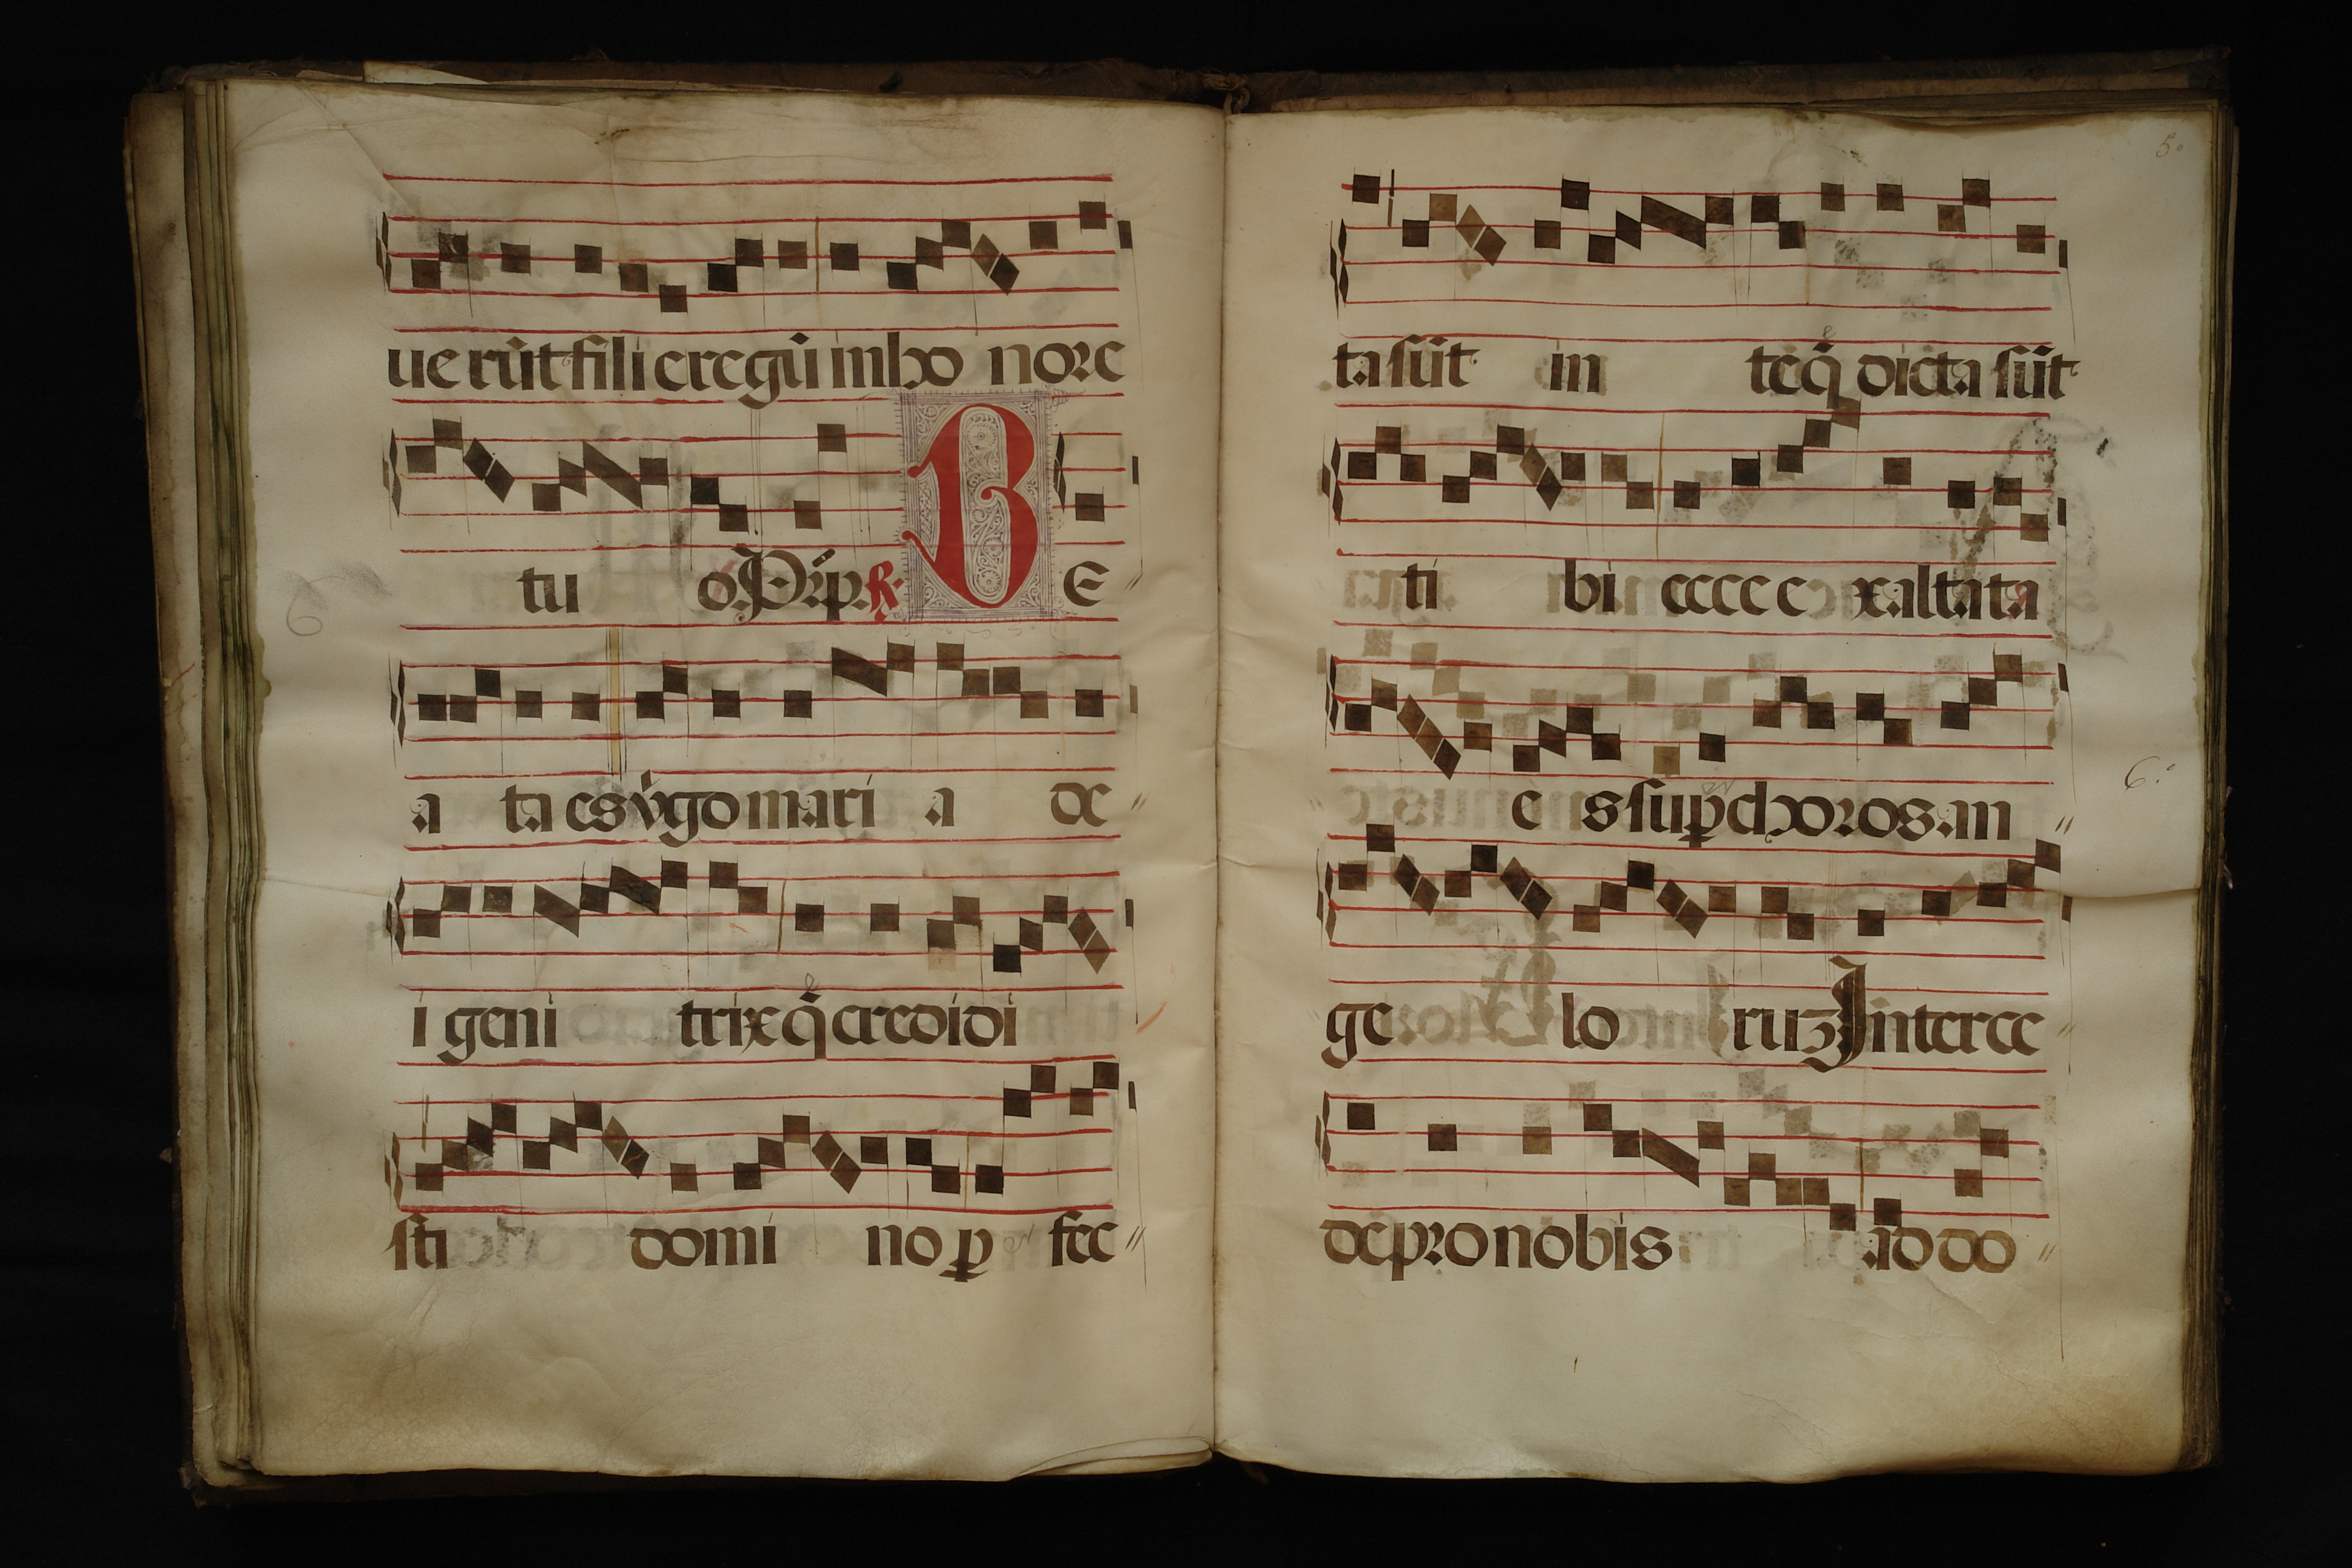 ue rūt filie regū in ho nore
tu o. Pr̄ip. R. B E
a ta es v̓go mari a de
i geni trix q̄ credidi
sti domi no ꝑ fec
5.
ta sūt in te q̄ dicta sūt
ti bi ecce e xalta ta
e s suꝑ choros an
6.
ge lo ruꝫ Interce
de pro nobis ad do